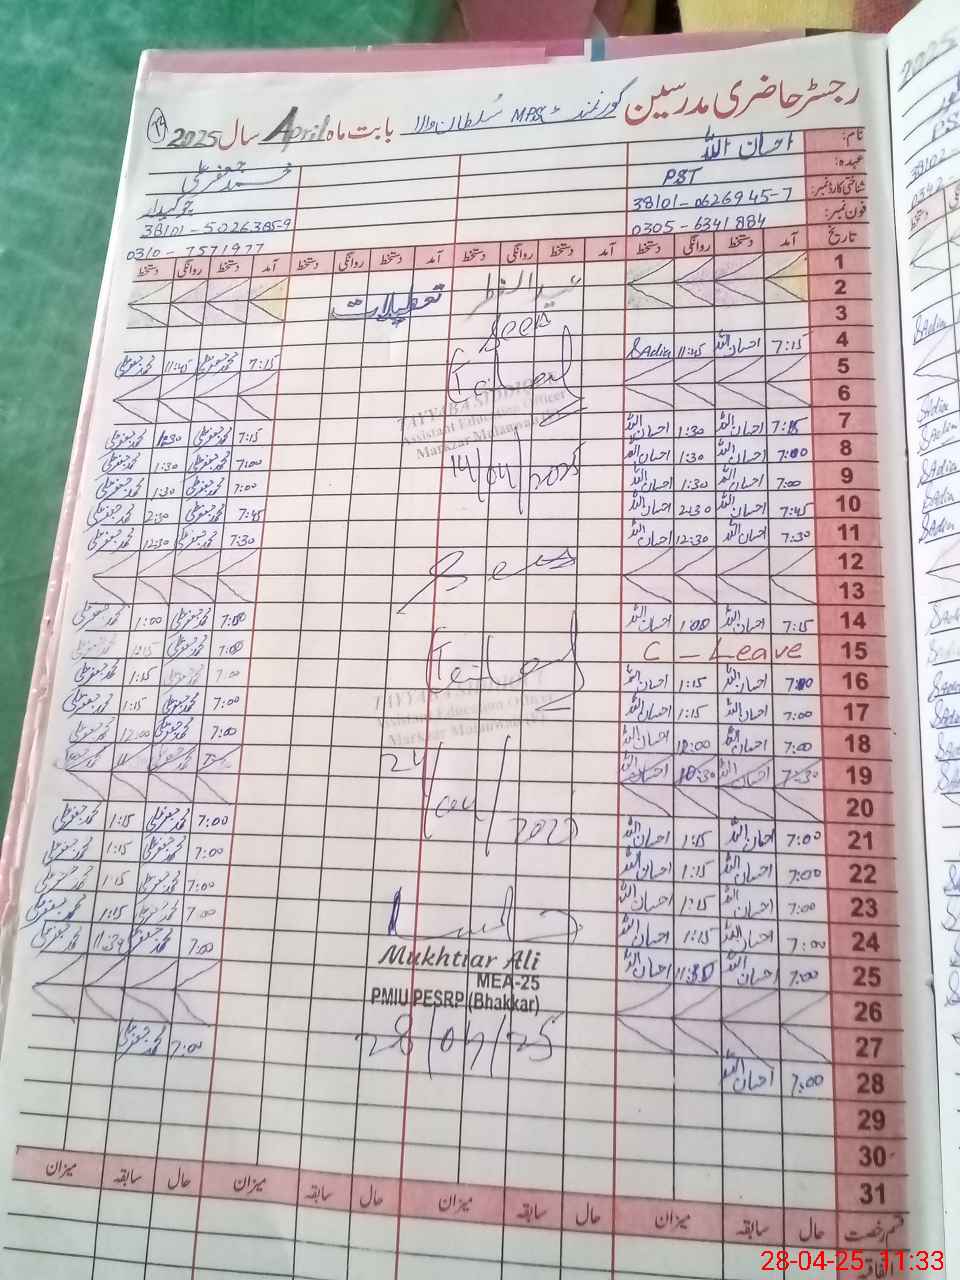 رجسٹر حاضری مدرسین گورنمنٹ MPS سلطان والا بابت ماہ April سال 2025
نام: احسان اللہ محمد جعفر علی
عہدہ: PST چوکیدار
شناختی کارڈ نمبر: 38101-0626945-7 38101-5026385-9
فون نمبر: 0305-6341884 0310-7571977
تاریخ آمد دستخط روانگی دستخط آمد دستخط روانگی دستخط آمد دستخط روانگی دستخط آمد دستخط روانگی دستخط
1
2 عید الفطر تعطیلات
3
4 7:15 احسان اللہ 11:45 Sadia Seen 7:15 محمد جعفر علی 11:45 محمد جعفر علی
5
6
TAYYABA SIDDIQUI
Assistant Education Officer
7 7:15 احسان اللہ 1:30 احسان اللہ 7:15 محمد جعفر علی محمد جعفر علی
8 7:00 احسان اللہ 1:30 احسان اللہ 14/04/2025 7:00 محمد جعفر علی 1:30 محمد جعفر علی
9 7:00 احسان اللہ 1:30 احسان اللہ 7:00 محمد جعفر علی 1:30 محمد جعفر علی
10 7:45 احسان اللہ 2:30 احسان اللہ 7:45 محمد جعفر علی 2:30 محمد جعفر علی
11 7:30 احسان اللہ 12:30 احسان اللہ 7:30 محمد جعفر علی 12:30 محمد جعفر علی
12
13
14 7:15 احسان اللہ 1:00 احسان اللہ 7:00 محمد جعفر علی 1:00 محمد جعفر علی
15 C - Leave 7:00 محمد جعفر علی 1:15 محمد جعفر علی
16 7:00 احسان اللہ 1:15 احسان اللہ 7:00 محمد جعفر علی 1:15 محمد جعفر علی
TAYYABA SIDDIQUI
Assistant Education Officer
17 7:00 احسان اللہ 1:15 احسان اللہ 7:00 محمد جعفر علی 1:15 محمد جعفر علی
18 7:00 احسان اللہ 12:00 احسان اللہ 7:00 محمد جعفر علی 12:00 محمد جعفر علی
19 7:30 احسان اللہ 10:30 احسان اللہ
20
21 7:00 احسان اللہ 1:15 احسان اللہ 7:00 محمد جعفر علی 1:15 محمد جعفر علی
22 7:00 احسان اللہ 1:15 احسان اللہ 7:00 محمد جعفر علی 1:15 محمد جعفر علی
23 7:00 احسان اللہ 1:15 احسان اللہ 7:00 محمد جعفر علی 1:15 محمد جعفر علی
24 7:00 احسان اللہ 1:15 احسان اللہ 7:00 محمد جعفر علی 1:15 محمد جعفر علی
25 7:00 احسان اللہ 11:30 احسان اللہ 7:00 محمد جعفر علی محمد جعفر علی
Mukhtiar Ali
MEA-25
PMIU PESRP (Bhakkar)
28/04/25
26
27
28 7:00 احسان اللہ 7:00 محمد جعفر علی
29
30
31
قسم رخصت حال سابقہ میزان حال سابقہ میزان حال سابقہ میزان حال سابقہ میزان
28-04-25 11:33